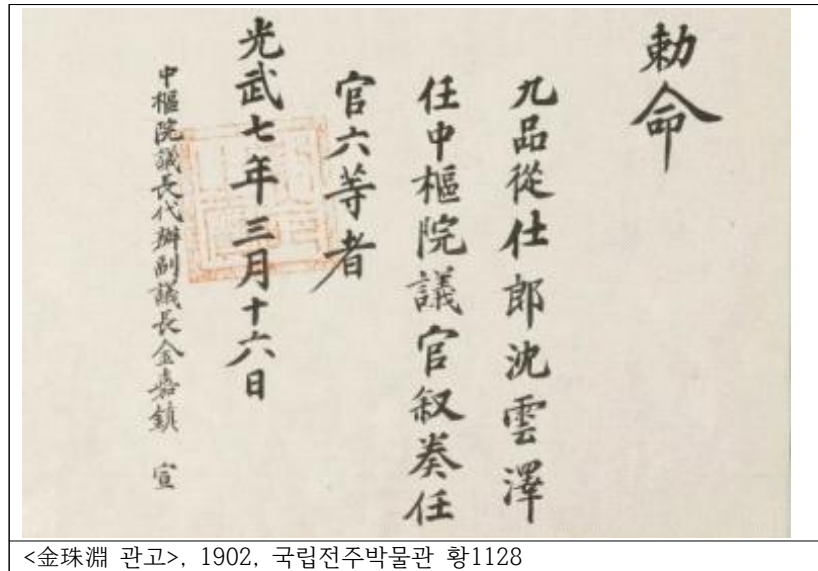 勅命
九品從仕郎沈雲澤
任中樞院議官叙奏任
官六等者
光武七年三月十六日
中樞院議長代辦副議長金嘉鎮 宣
<金珠淵 관고>, 1902, 국립전주박물관 황1128